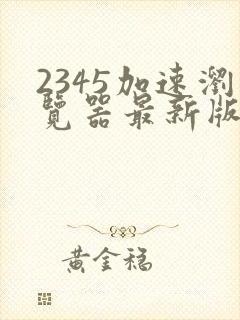 2345加速瀏
覽器最新版
黃金稳